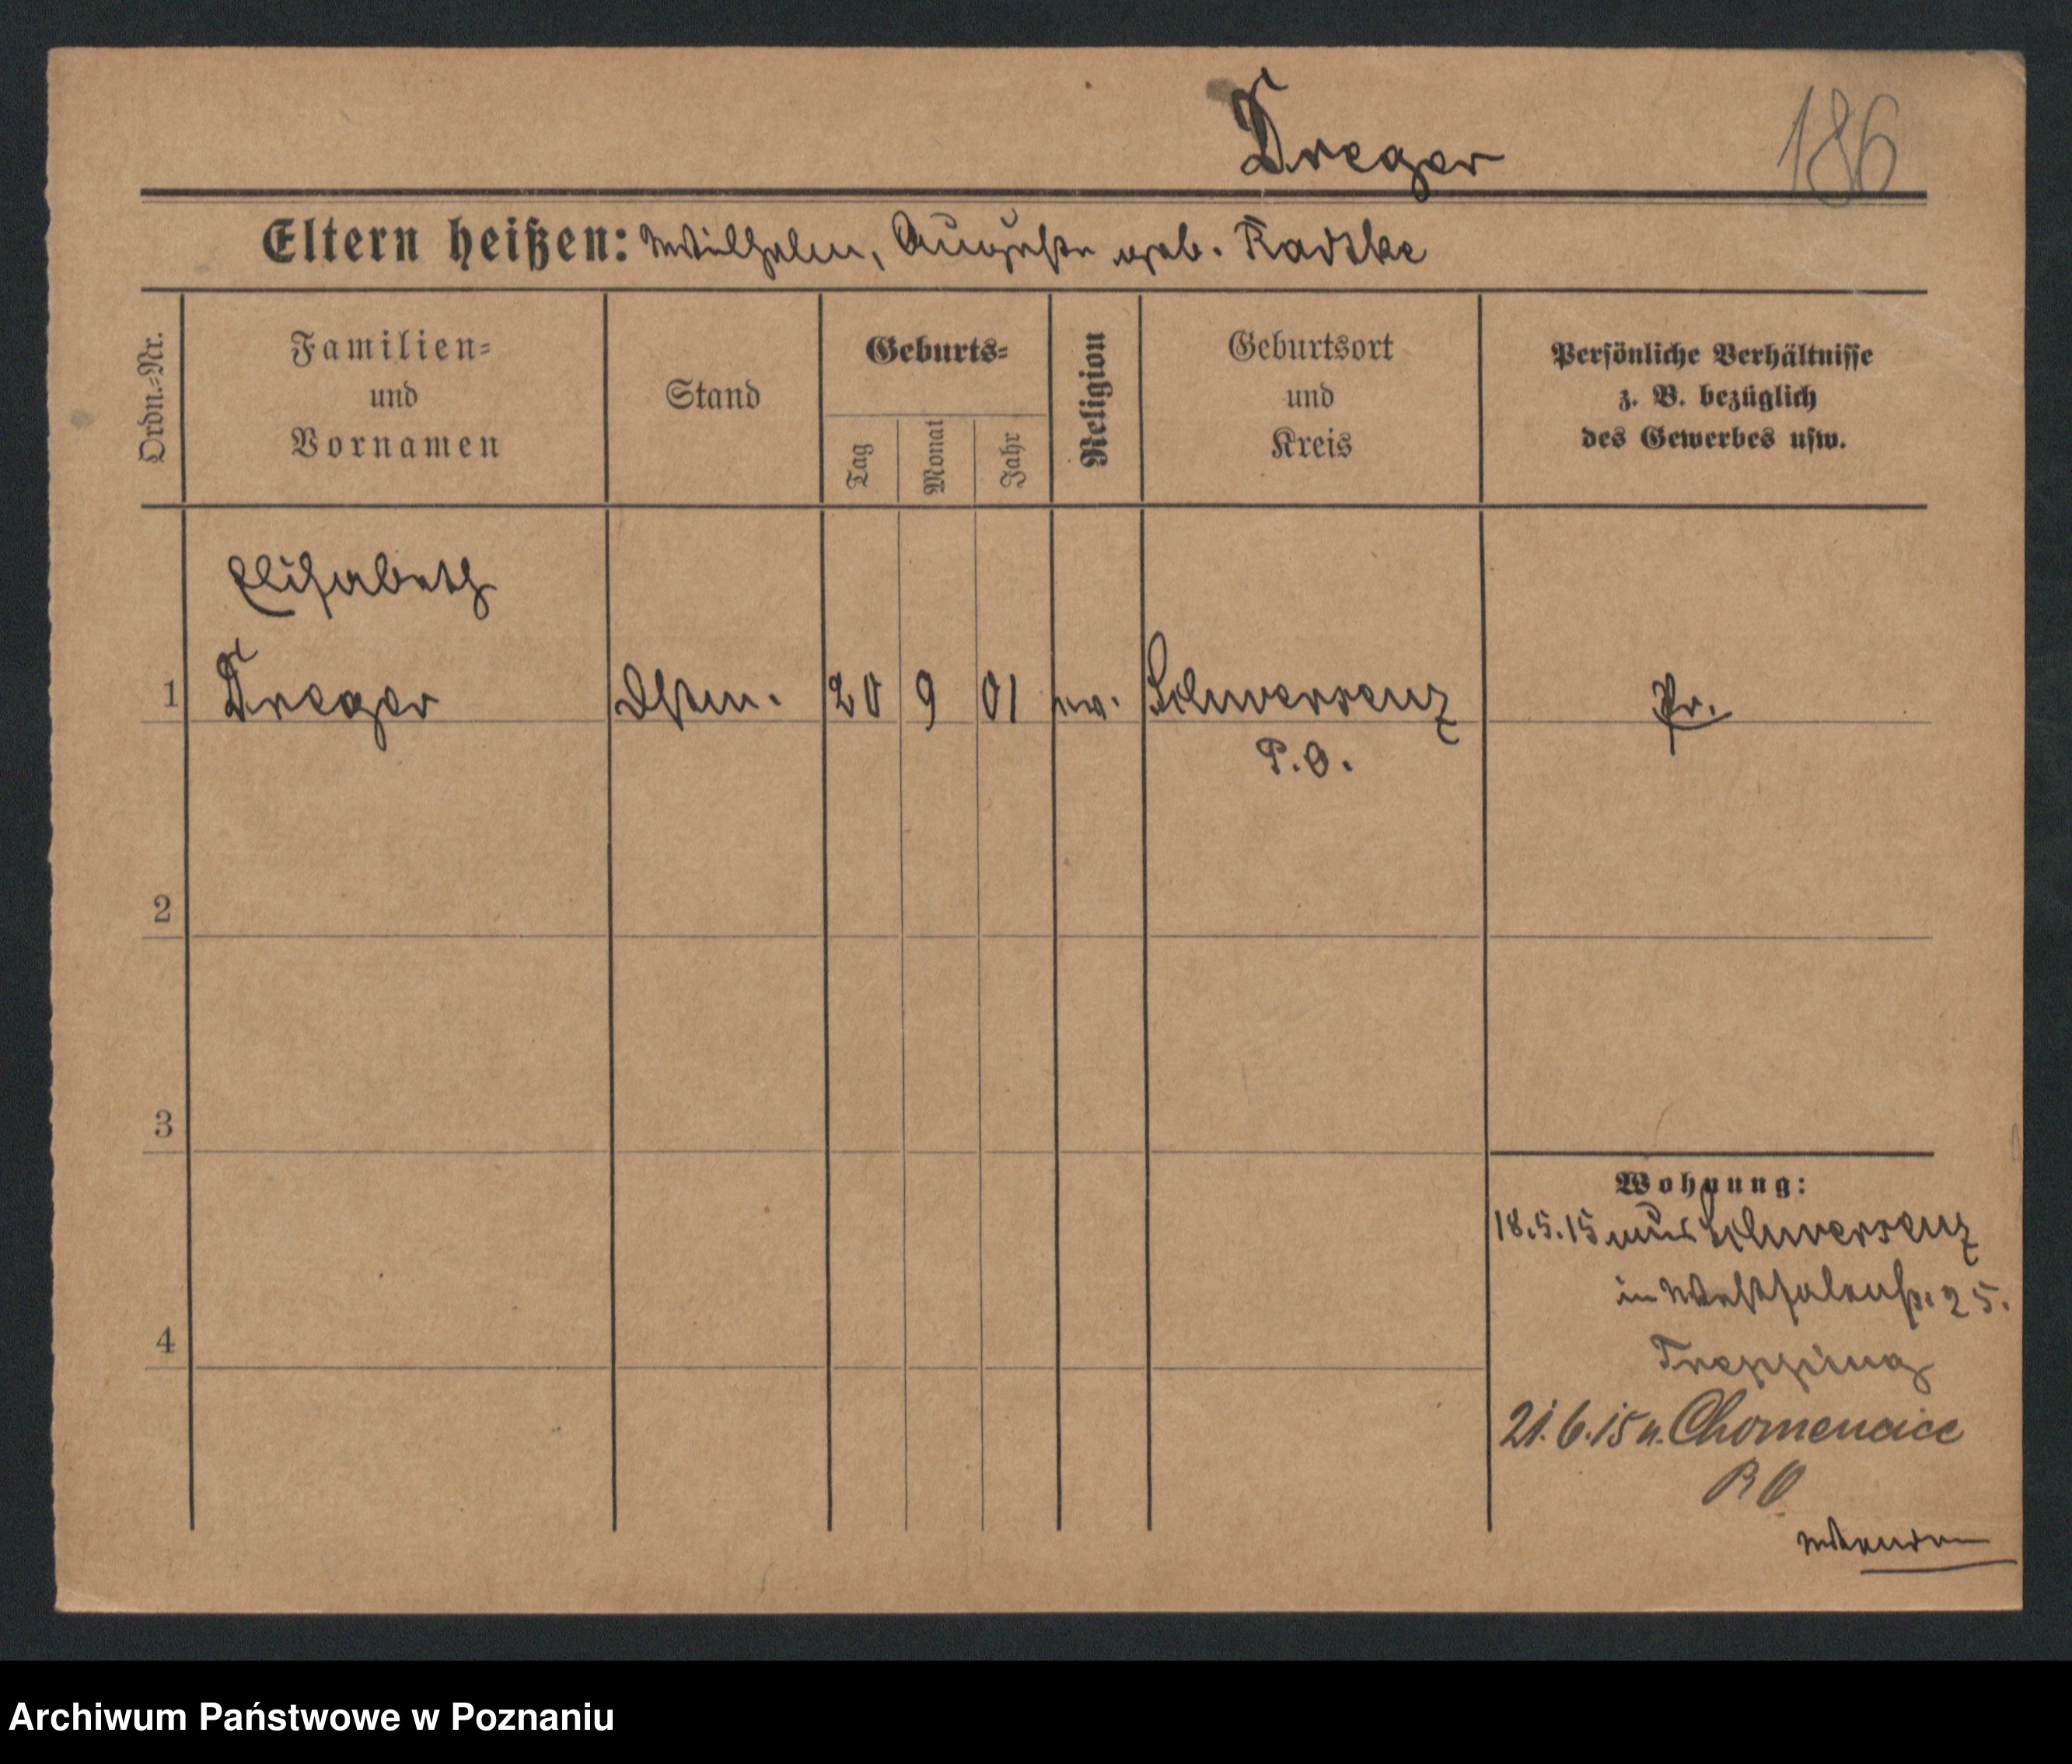 Dreger
186
Eltern heißen: Wilhelm, Auguste geb. Radtke
Ordn.-Nr.
Familien-
und
Vornamen
Stand
Geburts-
Tag
Monat
Jahr
Religion
Geburtsort
und
Kreis
Persönliche Verhältnisse
z. B. bezüglich
des Gewerbes usw.
Elisabeth
1 Dreger Dstm. 20 9 01 ev. Schwersenz Pr.
P.O.
2
3
4
Wohnung:
18.5.15 aus Schwersenz
in Westfalenstr. 25.
Trepping
21.6.15 n. Chomencice
P O
Archiwum Państwowe w Poznaniu